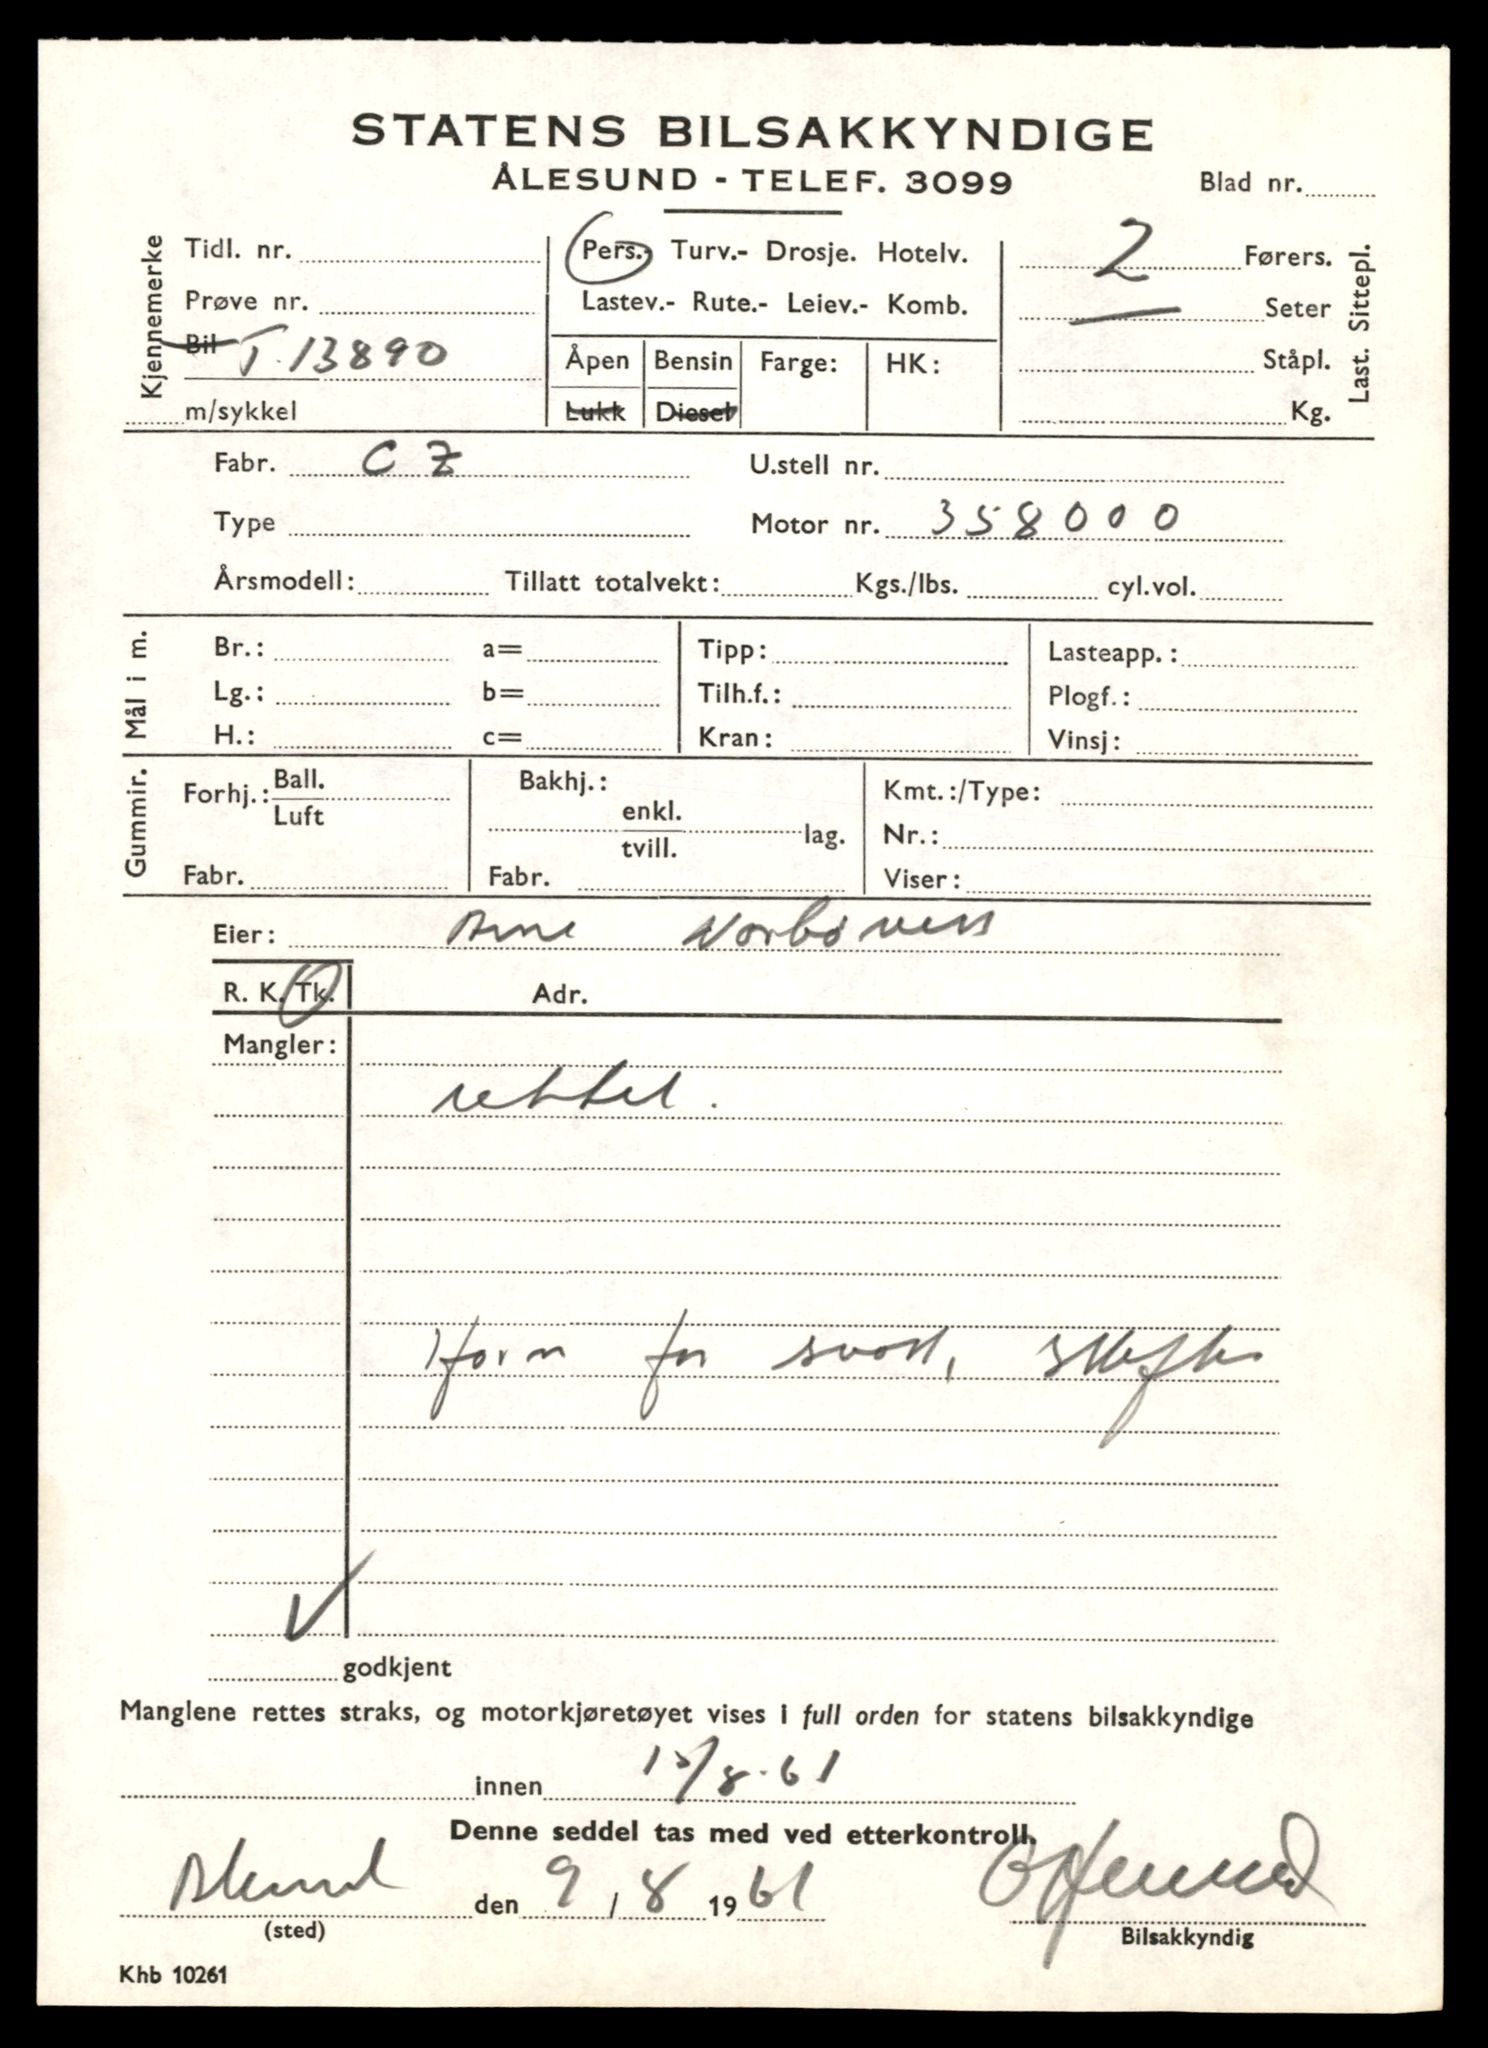 STATENS BILSAKKYNDIGE
ÅLESUND - TELEF. 3099
Blad nr.
Kjennemerke
Tidl. nr.
Prøve nr.
Bil T. 13890
m/sykkel
Pers.- Turv.- Drosje. Hotelv.
Lastev.- Rute.- Leiev.- Komb.
Åpen Bensin Farge: HK:
Lukk Diesel
2 Førers.
Seter
Ståpl.
Kg.
Last. Sittepl.
Fabr. CZ U.stell nr.
Type Motor nr. 358000
Årsmodell: Tillatt totalvekt: Kgs./lbs. cyl.vol.
Mål i m.
Br.: a= Tipp: Lasteapp.:
Lg.: b= Tilh.f.: Plogf.:
H.: c= Kran: Vinsj:
Gummir.
Forhj.: Ball. Bakhj.: Kmt.:/Type:
Luft enkl. lag. Nr.:
tvill.
Fabr. Fabr. Viser:
Eier: Arne
R. K. Tk. Adr.
Mangler:
rettet.
for
godkjent
Manglene rettes straks, og motorkjøretøyet vises i full orden for statens bilsakkyndige
innen 15/8-61
Denne seddel tas med ved etterkontroll.
Ålesund den 9/8 1961
(sted)
Bilsakkyndig
Khb 10261